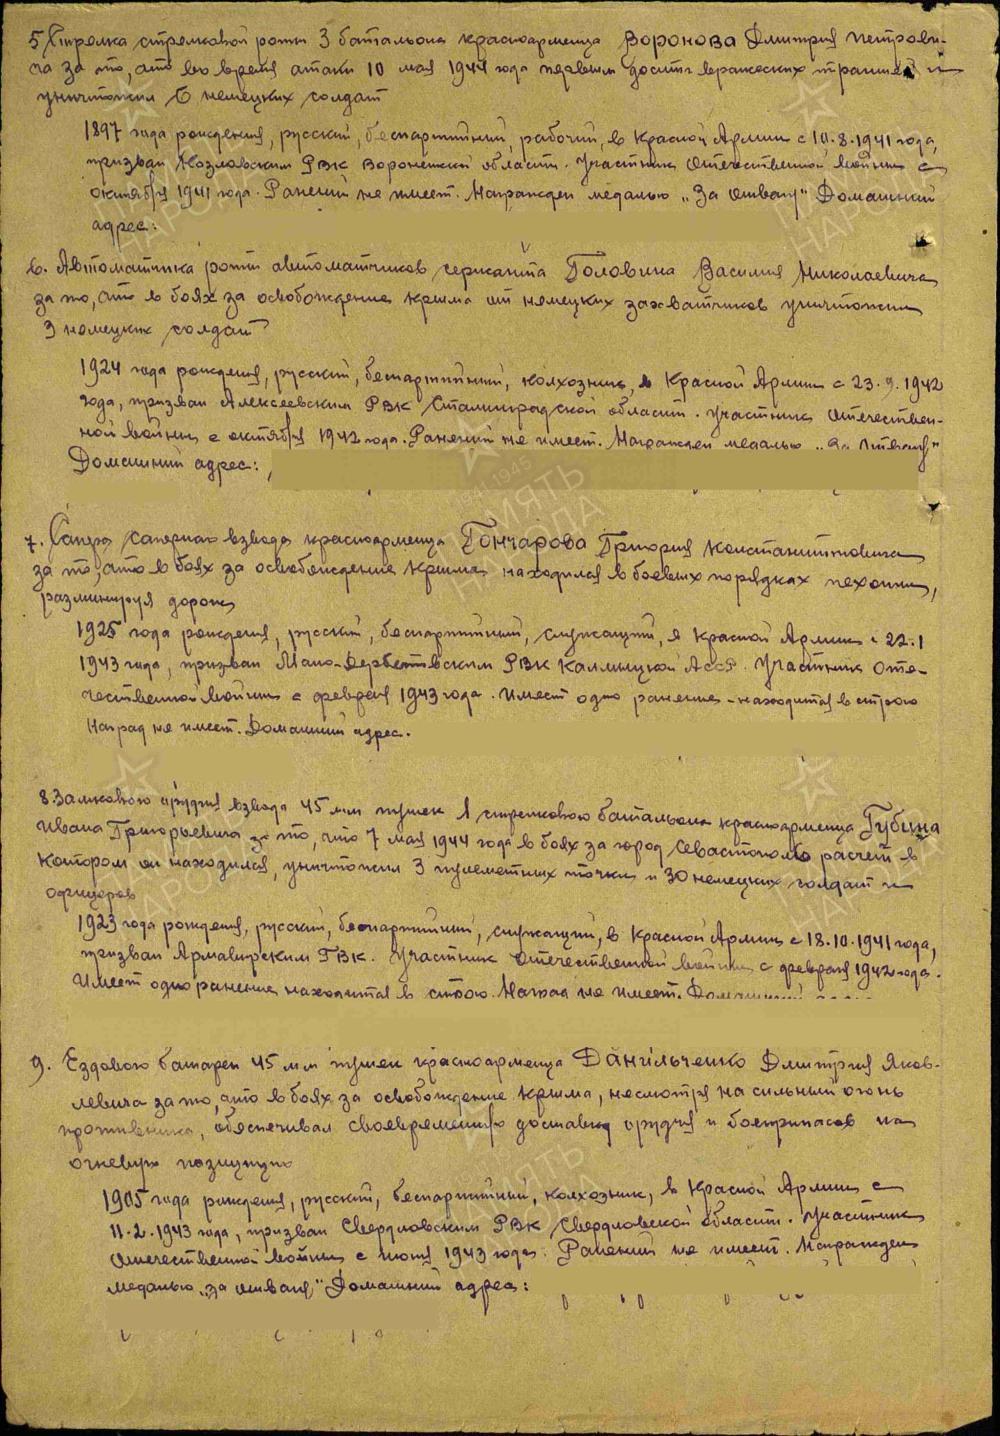 5 Стрелка стрелковой роты 3 батальона красноармейца Воронова Дмитрия Петрови-
ча за то, что во время атаки 10 мая 1944 года первым достиг вражеских траншей и
уничтожил 6 немецких солдат
1897 года рождения, русский, беспартийный, рабочий, в Красной Армии с 10.8.1941 года,
призван Козловским РВК Воронежской области. Участник Отечественной войны с
октября 1941 года. Ранений не имеет. Награжден медалью „За отвагу" Домашний
адрес:
6. Автоматчика роты автоматчиков сержанта Головина Василия Николаевича
за то, что в боях за освобождение Крыма от немецких захватчиков уничтожил
3 немецких солдат
1924 года рождения, русский, беспартийный, колхозник, в Красной Армии с 23.9.1942
года, призван Алексеевским РВК Сталинградской области. Участник Отечествен-
ной войны с октября 1942 года. Ранений не имеет. Награжден медалью „За отвагу"
Домашний адрес:
7. Сапера саперного взвода красноармейца Гончарова Григория Константиновича
за то, что в боях за освобождение Крыма находился в боевых порядках пехоты,
разминируя дороги
1925 года рождения, русский, беспартийный, служащий, в Красной Армии с 22.1
1943 года, призван Мало-Дербетовским РВК Калмыцкой АССР. Участник Оте-
чественной войны с февраля 1943 года. Имеет одно ранение - находится в строю
Наград не имеет. Домашний адрес.
8. Замкового орудия взвода 45 мм пушек 1 стрелкового батальона красноармейца Губина
Ивана Григорьевича за то, что 7 мая 1944 года в боях за город Севастополь расчет в
котором он находился, уничтожил 3 пулеметных точки и 30 немецких солдат и
офицеров
1923 года рождения, русский, беспартийный, служащий, в Красной Армии с 18.10.1941 года,
призван Армавирским ГВК. Участник Отечественной войны с февраля 1942 года.
Имеет одно ранение находится в строю. Наград не имеет. Домашний адрес
9. Ездового батареи 45 мм пушек красноармейца Данильченко Дмитрия Яков-
левича за то, что в боях за освобождение Крыма, несмотря на сильный огонь
противника, обеспечивал своевременную доставку орудия и боеприпасов на
огневую позицию
1905 года рождения, русский, беспартийный, колхозник, в Красной Армии с
11.2.1943 года, призван Свердловским РВК Свердловской области. Участник
Отечественной войны с июня 1943 года. Ранений не имеет. Награжден
медалью „За отвагу" Домашний адрес: